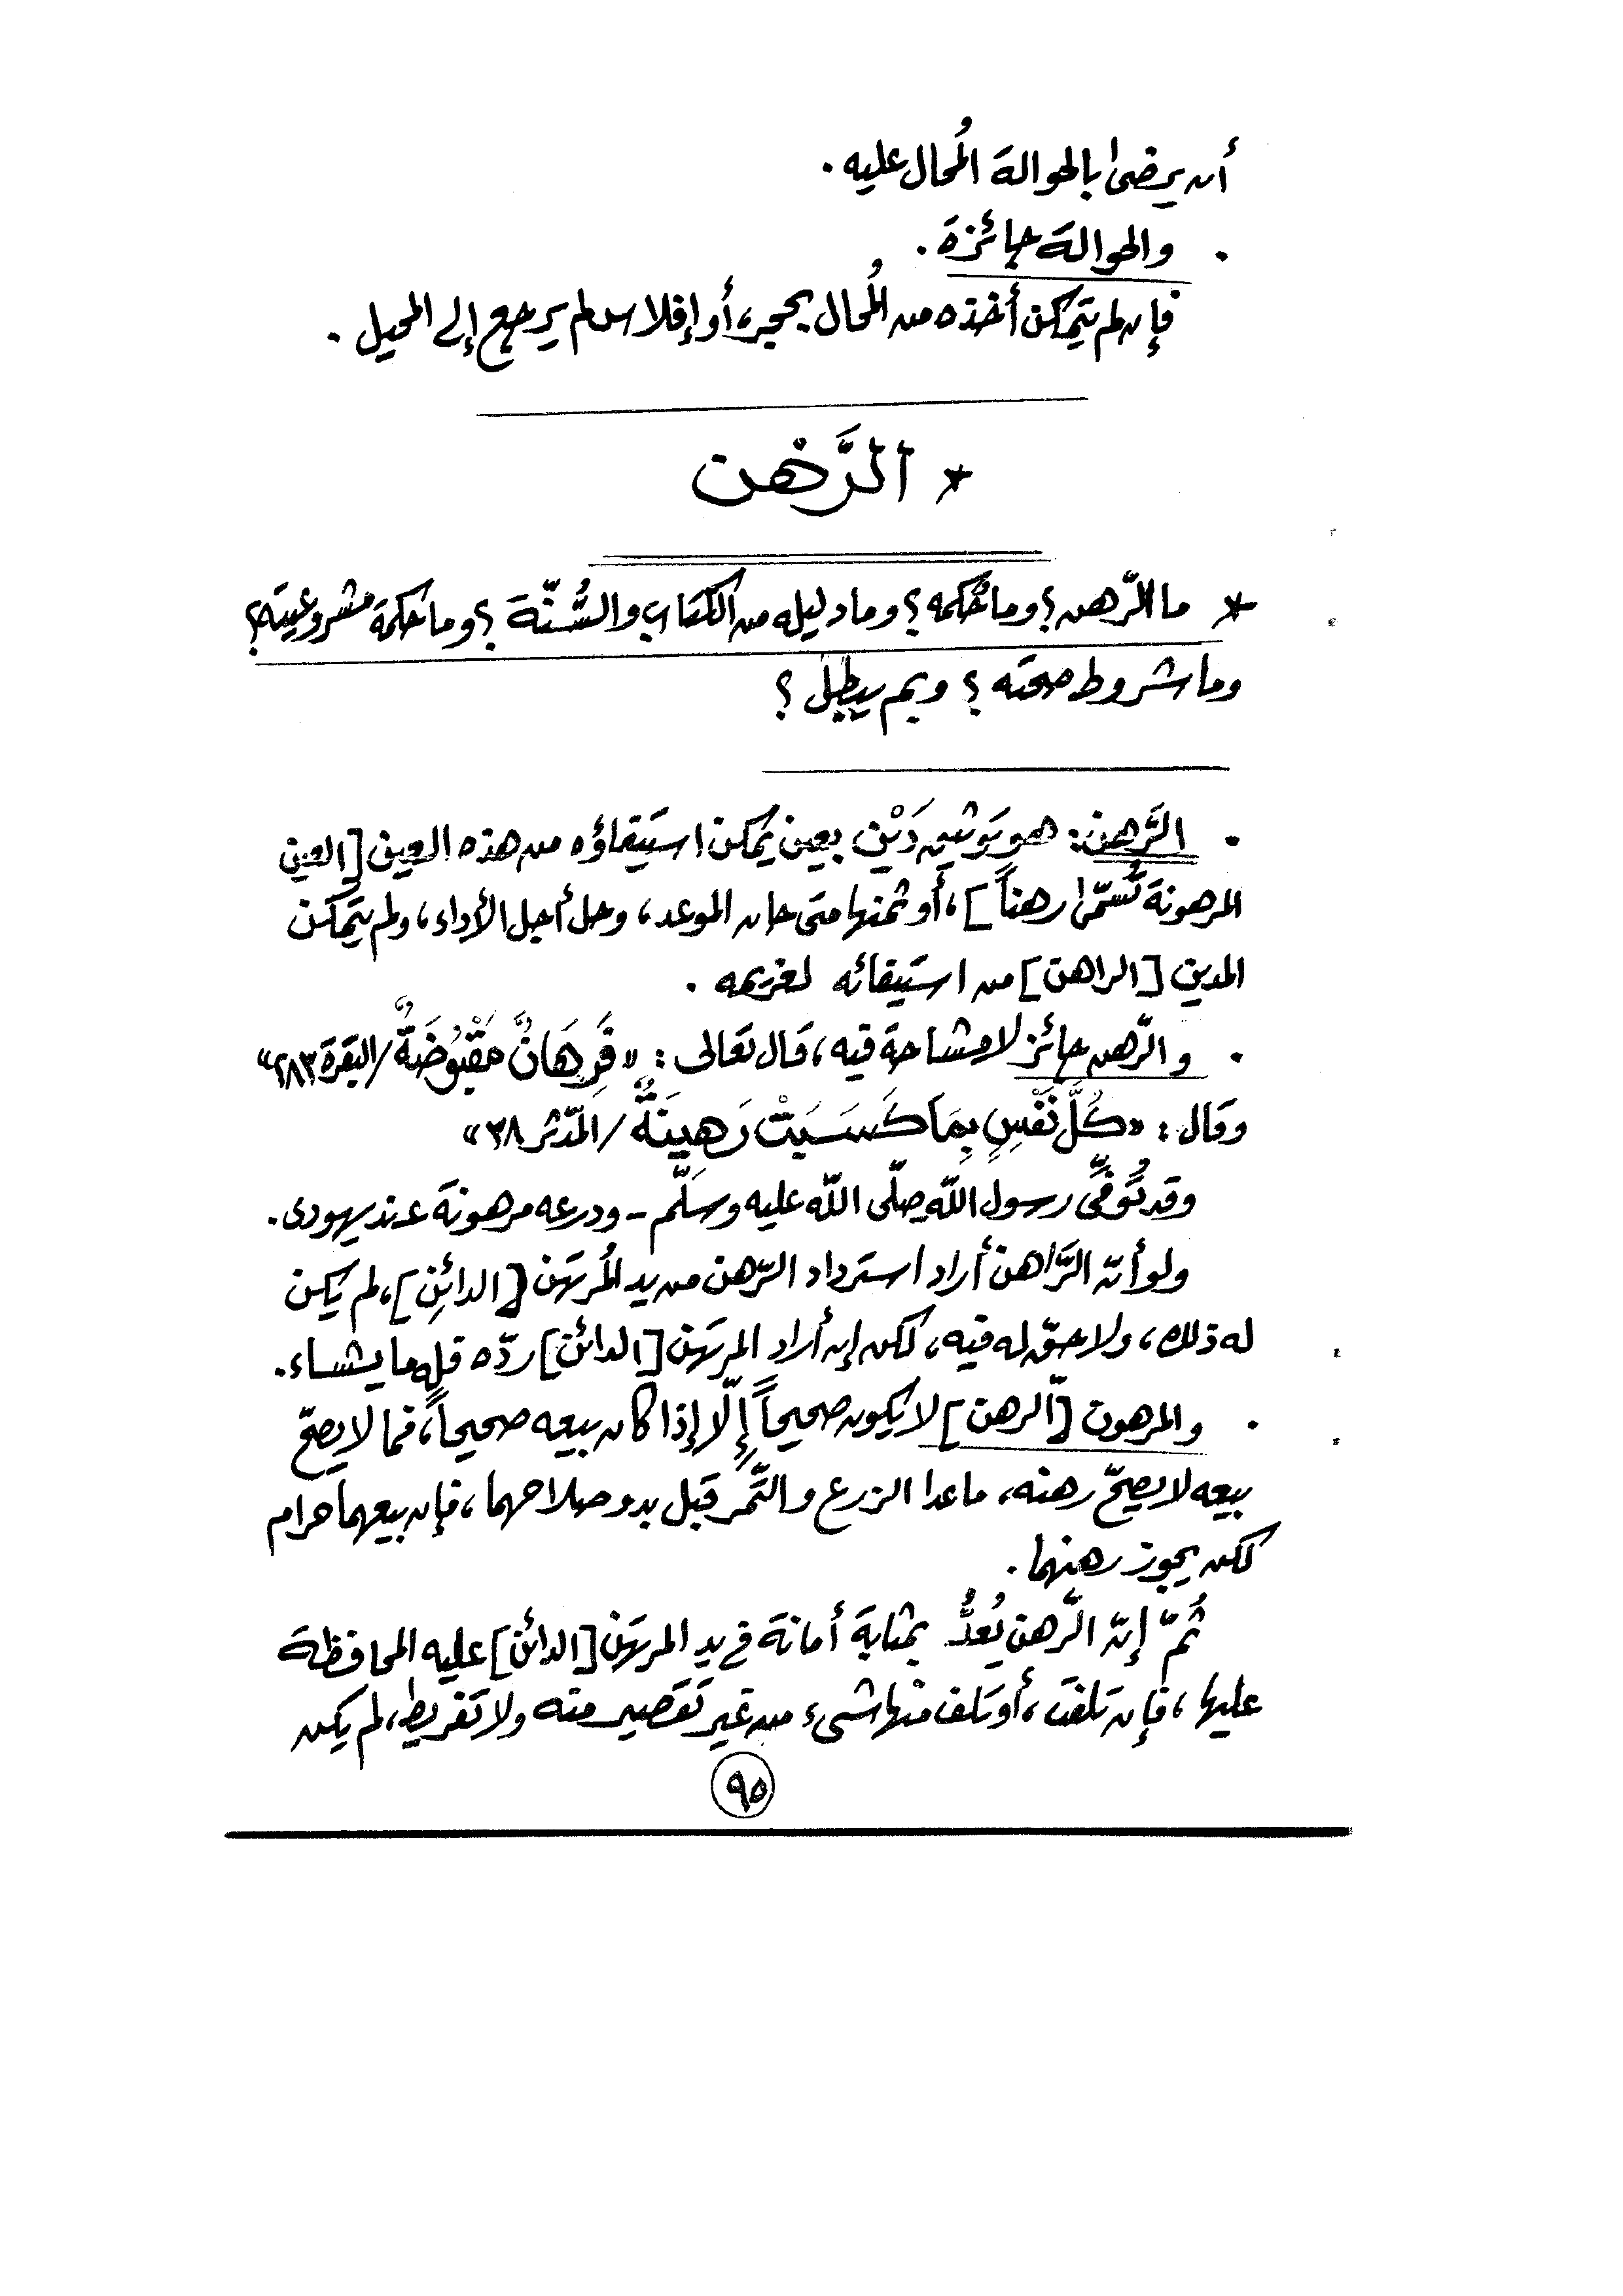 أن يرضىٰ بالحوالة المُحال عليه .
. والحوالة جائزة .
فإن لم يتمكن أخذه من المُحال بحجر، أو إفلاس لم يرجع إلى المحيل .
* الرَّهن
* ما الرّهن ؟ وما حُكمه ؟ وما دليله من الكتاب والسُّنّة ؟ وما حكمة مشروعيته ؟
وما شروط صحته ؟ وبم يبطل ؟
. الرَّهن : هو توثيق دَيْن بعين يمكن استيفاؤه من هذه العين [ العين
المرهونة تُسمّىٰ رهناً ] ، أو ثمنها متى حان الموعد ، وحل أجل الأداء ، ولم يتمكن
المدين [ الراهن ] من استيفائه لغريمه .
. والرّهن جائز لا مشاحة فيه ، قال تعالى : « فَرِهَانٌ مَقْبُوضَةٌ / البقرة ٢٨٣ »
وقال : « كُلُّ نَفْسٍ بِمَا كَسَبَتْ رَهِينَةٌ / المدّثر ٣٨ »
وقد تُوفّي رسول اللّه صلّى اللّه عليه وسلّم - ودرعه مرهونة عند يهودي .
ولو أنّ الرَّاهن أراد استرداد الرّهن من يد المُرتهن [ الدائِن ] ، لم يكن
له ذلك ، ولا حقّ له فيه ، لكن إن أراد المرتهن [ الدائن ] ردّه فله ما يشاء .
. والمرهون [ الرهن ] لا يكون صحيحاً إلّا إذا كان بيعه صحيحاً ، فما لا يصحّ
بيعه لا يصحّ رهنه ، ماعدا الزرع والثَّمر قبل بدو صلاحهما ، فإن بيعهما حرام
لكن يجوز رهنهما .
ثُمّ إنّ الرّهن يُعدُّ بمثابة أمانة في يد المرتهن [ الدائن ] عليه المحافظة
عليها ، فإن تلفت ، أو تلف منها شيء من غير تقصير منه ولا تفريط ، لم يكن
٩٥